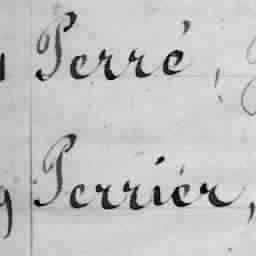 Perré,
Perrier,